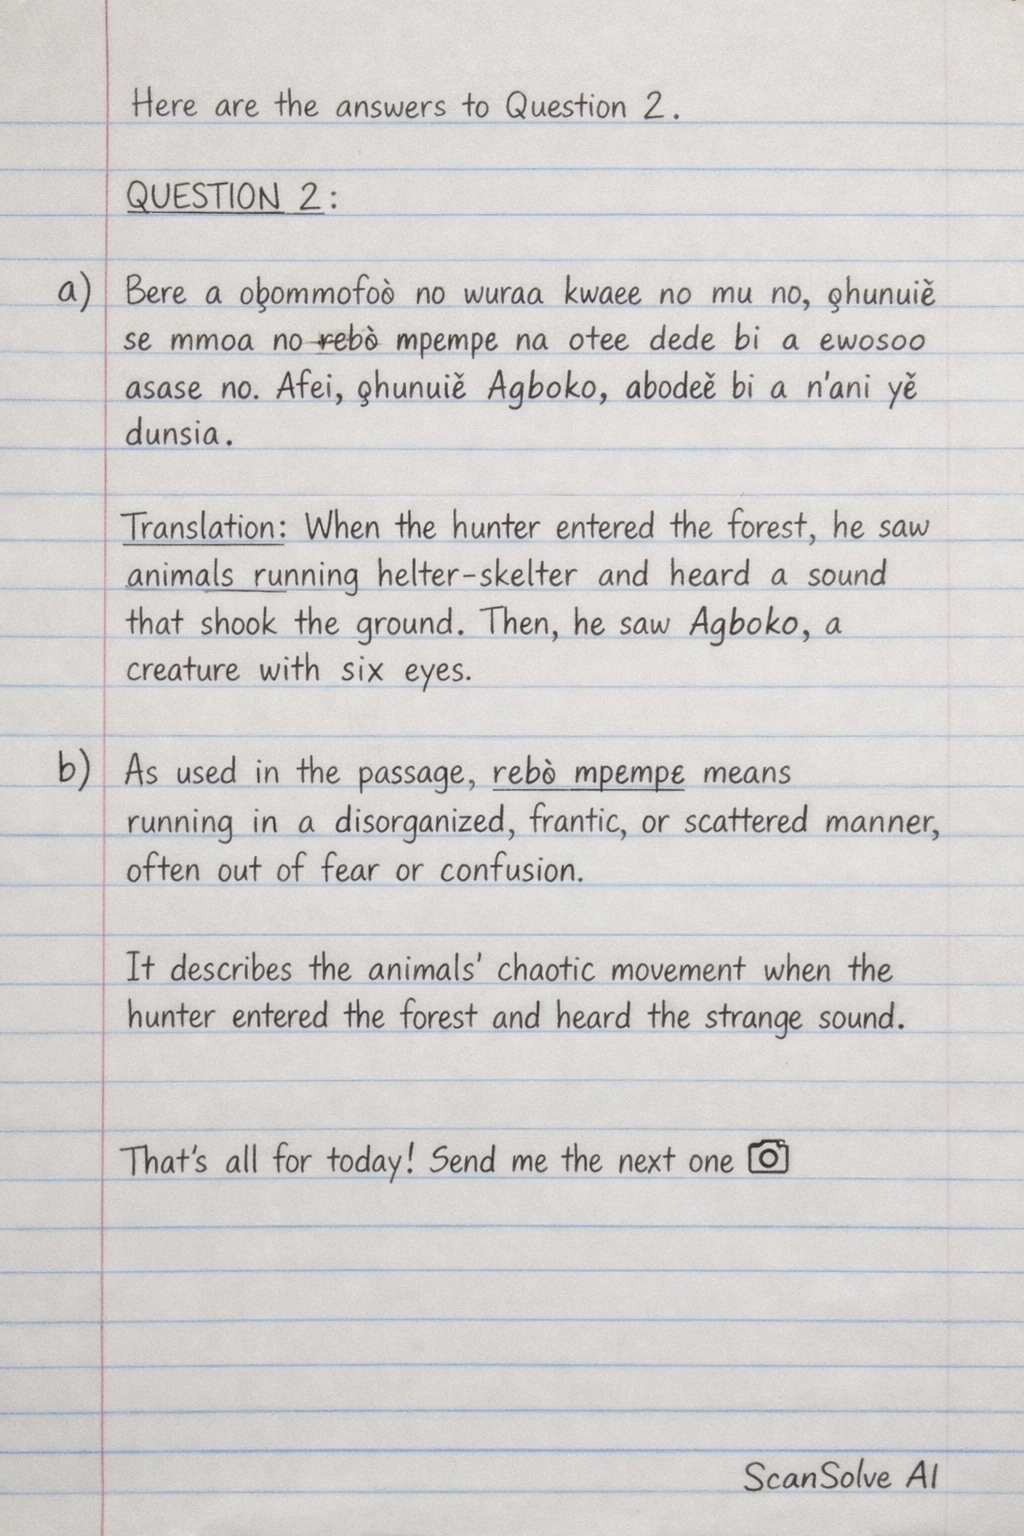 Here are the answers to Question 2.
QUESTION 2:
a) Bere a ob̧ommofoò no wuraa kwaee no mu no, o̧hunuiĕ
se mmoa no rebò mpempe na otee dede bi a ewosoo
asase no. Afei, o̧hunuiĕ Agboko, abodeĕ bi a n'ani yĕ
dunsia.
Translation: When the hunter entered the forest, he saw
animals running helter-skelter and heard a sound
that shook the ground. Then, he saw Agboko, a
creature with six eyes.
b) As used in the passage, rebò mpempɛ means
running in a disorganized, frantic, or scattered manner,
often out of fear or confusion.
It describes the animals' chaotic movement when the
hunter entered the forest and heard the strange sound.
That's all for today! Send me the next one 📷
ScanSolve AI